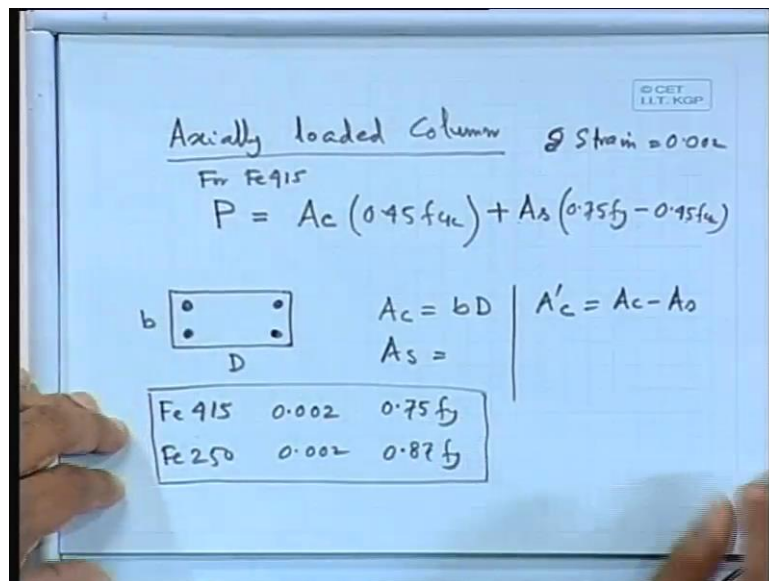 © CET
I.I.T. KGP
Axially loaded Column Strain = 0.002
For Fe415
P = Ac (0.45fck) + As (0.75fy - 0.45fck)
b
D
Ac = bD
A'c = Ac - As
As =
Fe 415 0.002 0.75 fy
Fe 250 0.002 0.87 fy